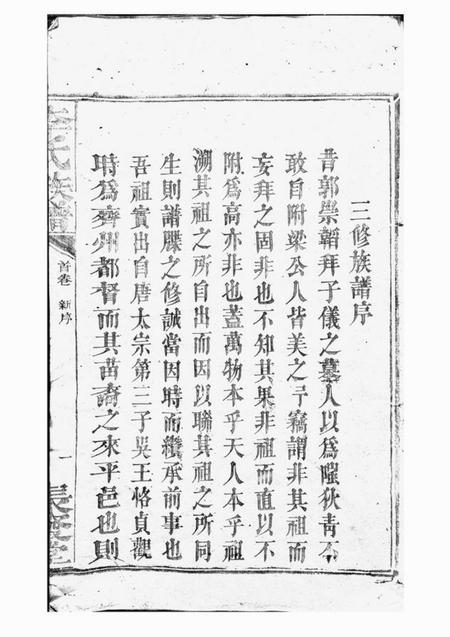 三修族譜序
昔郭崇韜拜子儀之墓人以為嗤狄青不
敢自附梁公人皆美之予竊謂非其祖而
妄拜之固非也不知其果非祖而直以不
附為高亦非也蓋萬物本乎天人本乎祖
溯其祖之所自出而因以聯其祖之所同
生則譜牒之修誠當因時而纘承前事也
吾祖實出自唐太宗第三子吳王恪貞觀
時為齊州都督而其苗裔之來平邑也則
李氏族譜
首卷 新序
一